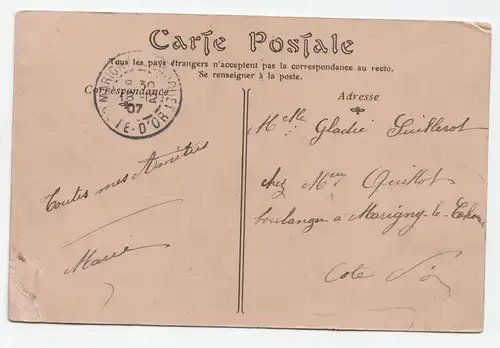 Carte Postale
Tous les pays étrangers n'acceptent pas la correspondance au recto.
Se renseigner à la poste.
Correspondance
Adresse
07
TE-D'OR
Melle Gladie Guillerot
chez Mr
boulanger à Marigny-le-
Cote d'or
Toutes mes Amitiés
Marie